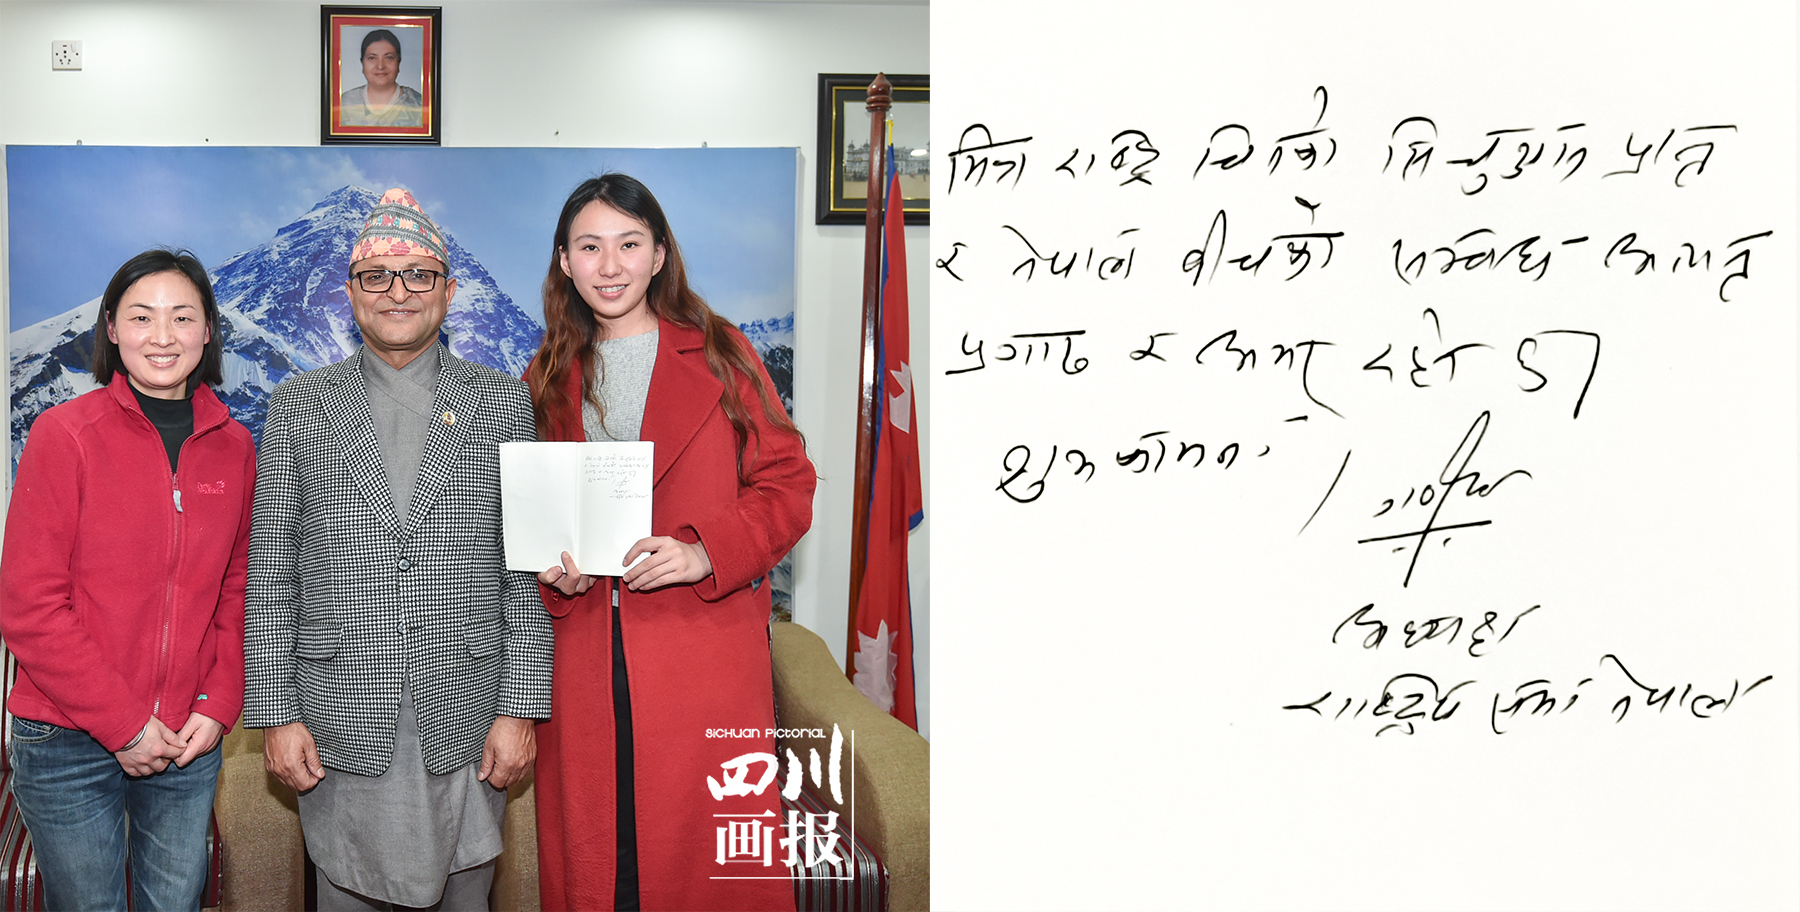 SICHUAN PICTORIAL
四川
画报
मित्र राष्ट्र चिनको सिचुआन प्रान्त
र नेपाल बीचको सम्बन्ध अत्यन्त
प्रगाढ र अमर छ।
शुभकामना ।
अध्यक्ष
राष्ट्रिय सभा नेपाल